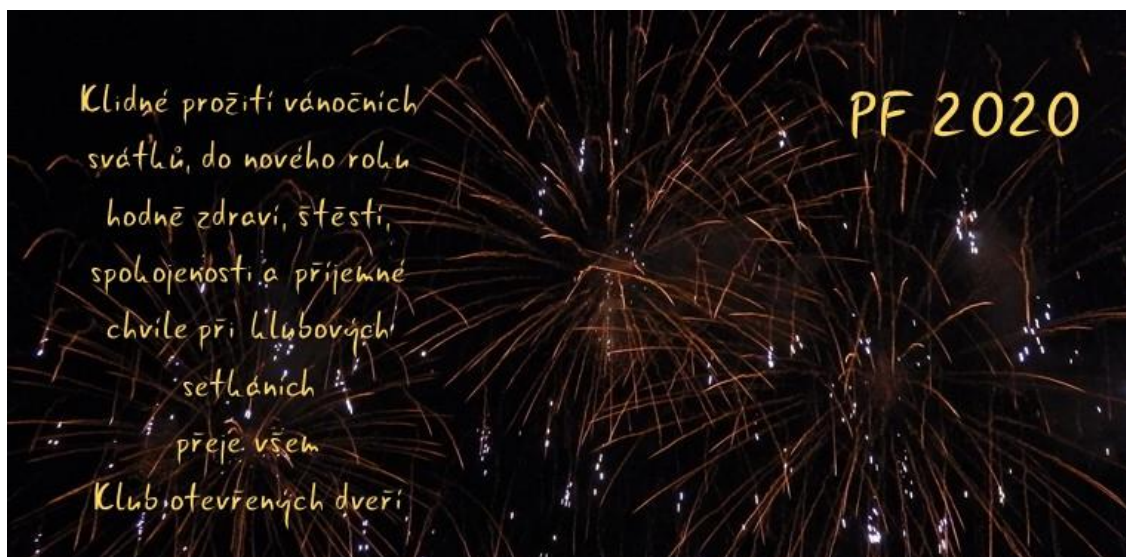 Klidné prožití vánočních
svátků, do nového roku
hodně zdraví, štěstí,
spokojenosti a příjemné
chvíle při klubových
setkáních
přeje všem
Klub otevřených dveří
PF 2020